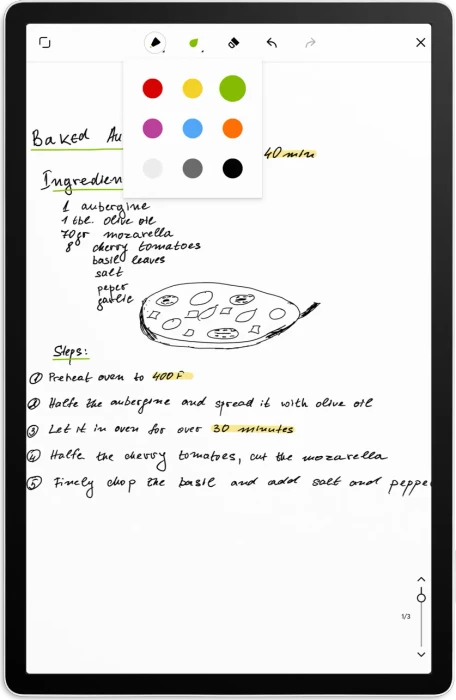 Baked Au
40 min
Ingredien
1 aubergine
1 tbl. olive oil
70gr mozarella
8 cherry tomatoes
basil leaves
salt
peper
garlic
Steps:
① Preheat oven to 400F
② Halfe the aubergine and spread it with olive oil
③ Let it in oven for over 30 minutes
④ Halfe the cherry tomatoes, cut the mozarella
⑤ Finely chop the basil and add salt and peppe
1/3